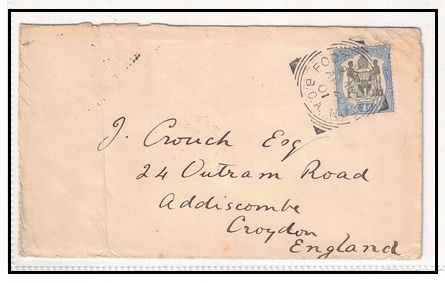 B.C.A.
01
J. Crouch Esq
24 Outram Road
Addiscombe
Croydon
England